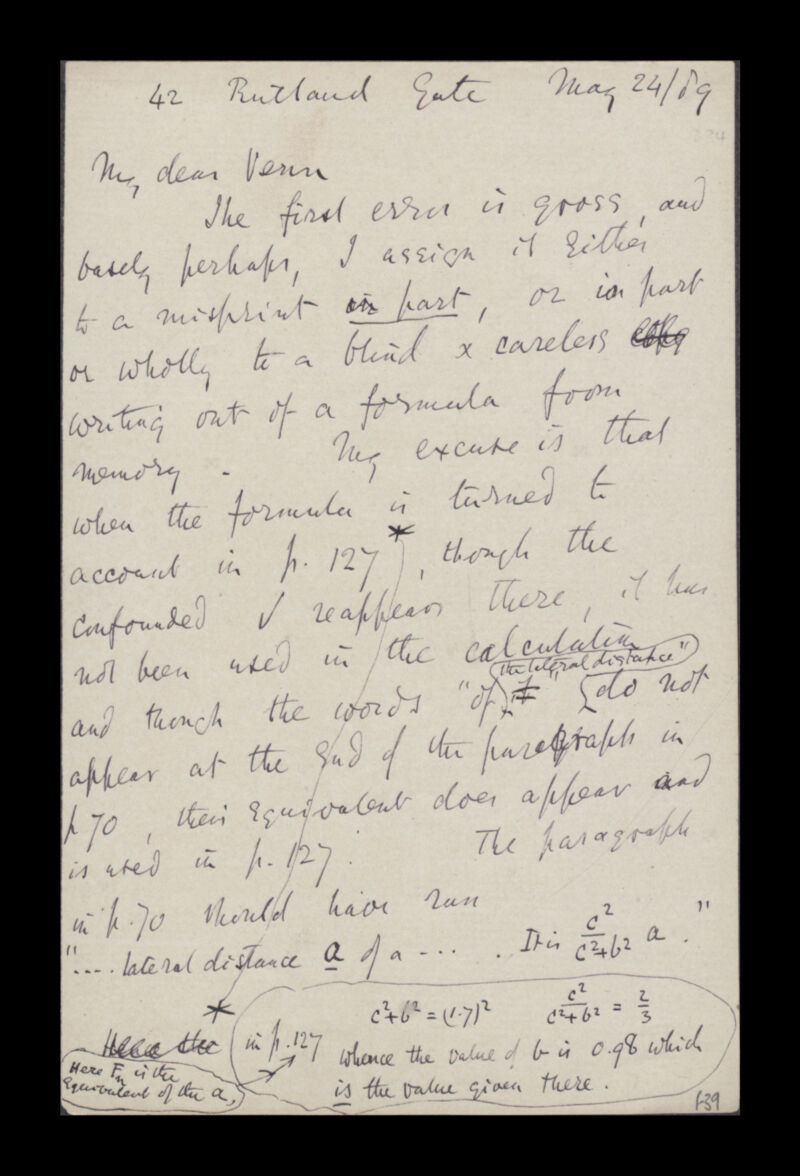 42 Rutland Gate May 24/89
My dear Venn
The first error is gross, and
basely perhaps, I assign it Either
to a misprint in part, or in part
or wholly to a blind & careless
writing out of a formula from
memory. My excuse is that
when the formula is turned to
account in p. 127*, though the
confounded √ reappears there, it has
not been used in the calculation
"the lateral distance"
and though the words "of it do not
appear at the End of the paragraph in
p 70, their Equivalent does appear and
is used in p. 127. The paragraph
in p. 70 should have run
".... lateral distance a of a .... It is c²/(c²+b²) a."
* c²+b² = (1.7)² c²/(c²+b²) = 2/3
Here the in p. 127 whence the value of b is 0.98 which
is the value given there.
Here Fn is the
Equivalent of the a,
f39